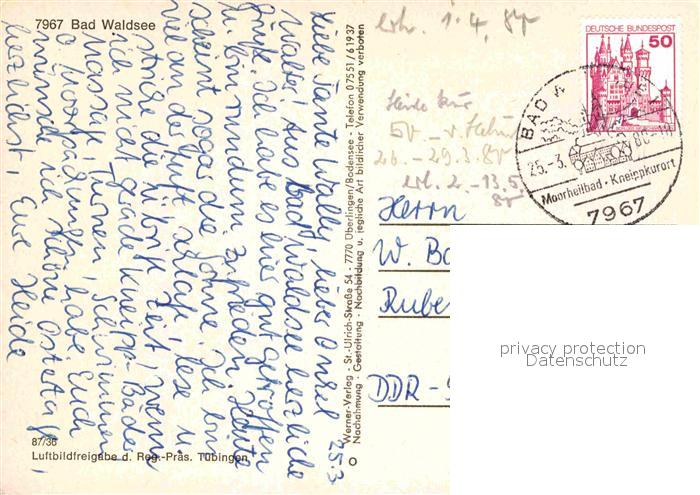 7967 Bad Waldsee
25.3.
Liebe Tante Wally, lieber Onkel
Walter! Aus Bad Waldsee herzliche
Grüße. Ich habe es hier gut getroffen
u. bin rundum zufrieden. Heute
scheint sogar die Sonne. Ich bin
viel an der Luft, schlafe, lese u.
stricke die übrige Zeit, wenn
ich nicht gerade Kneipp-Bäder,
Massagen, Turnen, Schwimmen
o. Moorpackungen habe. Euch
wünsche ich schöne Ostertage
herzlichst, Eure Heide
87/36
Luftbildfreigabe d. Reg.-Präs. Tübingen
Werner-Verlag - St.-Ulrich-Straße 54 - 7770 Überlingen/Bodensee - Telefon 07551/61937
Nachahmung - Gestaltung - Nachbildung u. jegliche Art bildlicher Verwendung verboten
1.4.
Heide
DEUTSCHE BUNDESPOST
50
BAD
25.-3.
Moorheilbad · Kneippkurort
7967
Herrn
W.
DDR -
privacy protection
Datenschutz